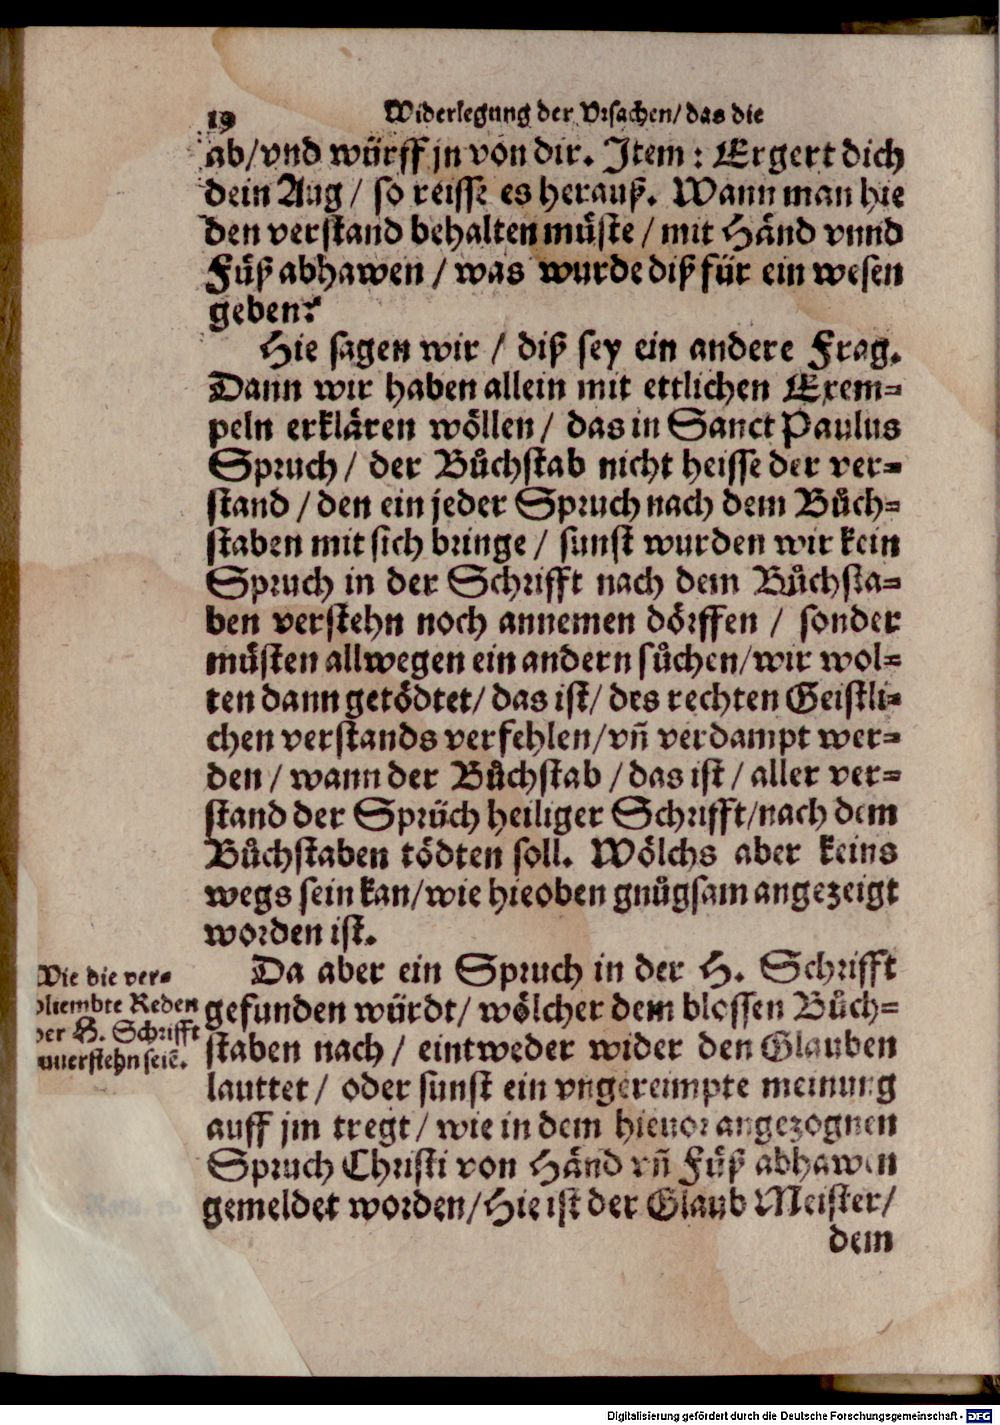 19
Widerlegung der Vrsachen/ das die
ab/ vnd würff jn von dir. Item: Ergert dich
dein Aug / so reisse es herauß. Wann man hie
den verstand behalten müste / mit Händ vnnd
Füß abhawen / was wurde diß für ein wesen
geben?
Hie sagen wir / diß sey ein andere Frag.
Dann wir haben allein mit ettlichen Exem-
peln erklären wöllen / das in Sanct Paulus
Spruch / der Bůchstab nicht heisse der ver-
stand / den ein jeder Spruch nach dem Bůch-
staben mit sich bringe / sunst wurden wir kein
Spruch in der Schrifft nach dem Bůchsta-
ben verstehn noch annemen dörffen / sonder
müsten allwegen ein andern sůchen/ wir wol-
ten dann getödtet/ das ist/ des rechten Geistli-
chen verstands verfehlen/ vñ verdampt wer-
den / wann der Bůchstab / das ist / aller ver-
stand der Sprüch heiliger Schrifft/ nach dem
Bůchstaben tödten soll. Wölchs aber keins
wegs sein kan/ wie hieoben gnůgsam angezeigt
worden ist.
Wie die ver-
blembte Reden
der H. Schrifft
zuuerstehn seiẽ.
Da aber ein Spruch in der H. Schrifft
gefunden würdt/ wölcher dem blossen Bůch-
staben nach / eintweder wider den Glauben
lauttet / oder sunst ein vngereimpte meinung
auff jm tregt / wie in dem hieuor angezognen
Spruch Christi von Händ vñ Füß abhawen
gemeldet worden/ Hie ist der Glaub Meister/
dem
Digitalisierung gefördert durch die Deutsche Forschungsgemeinschaft - DFG